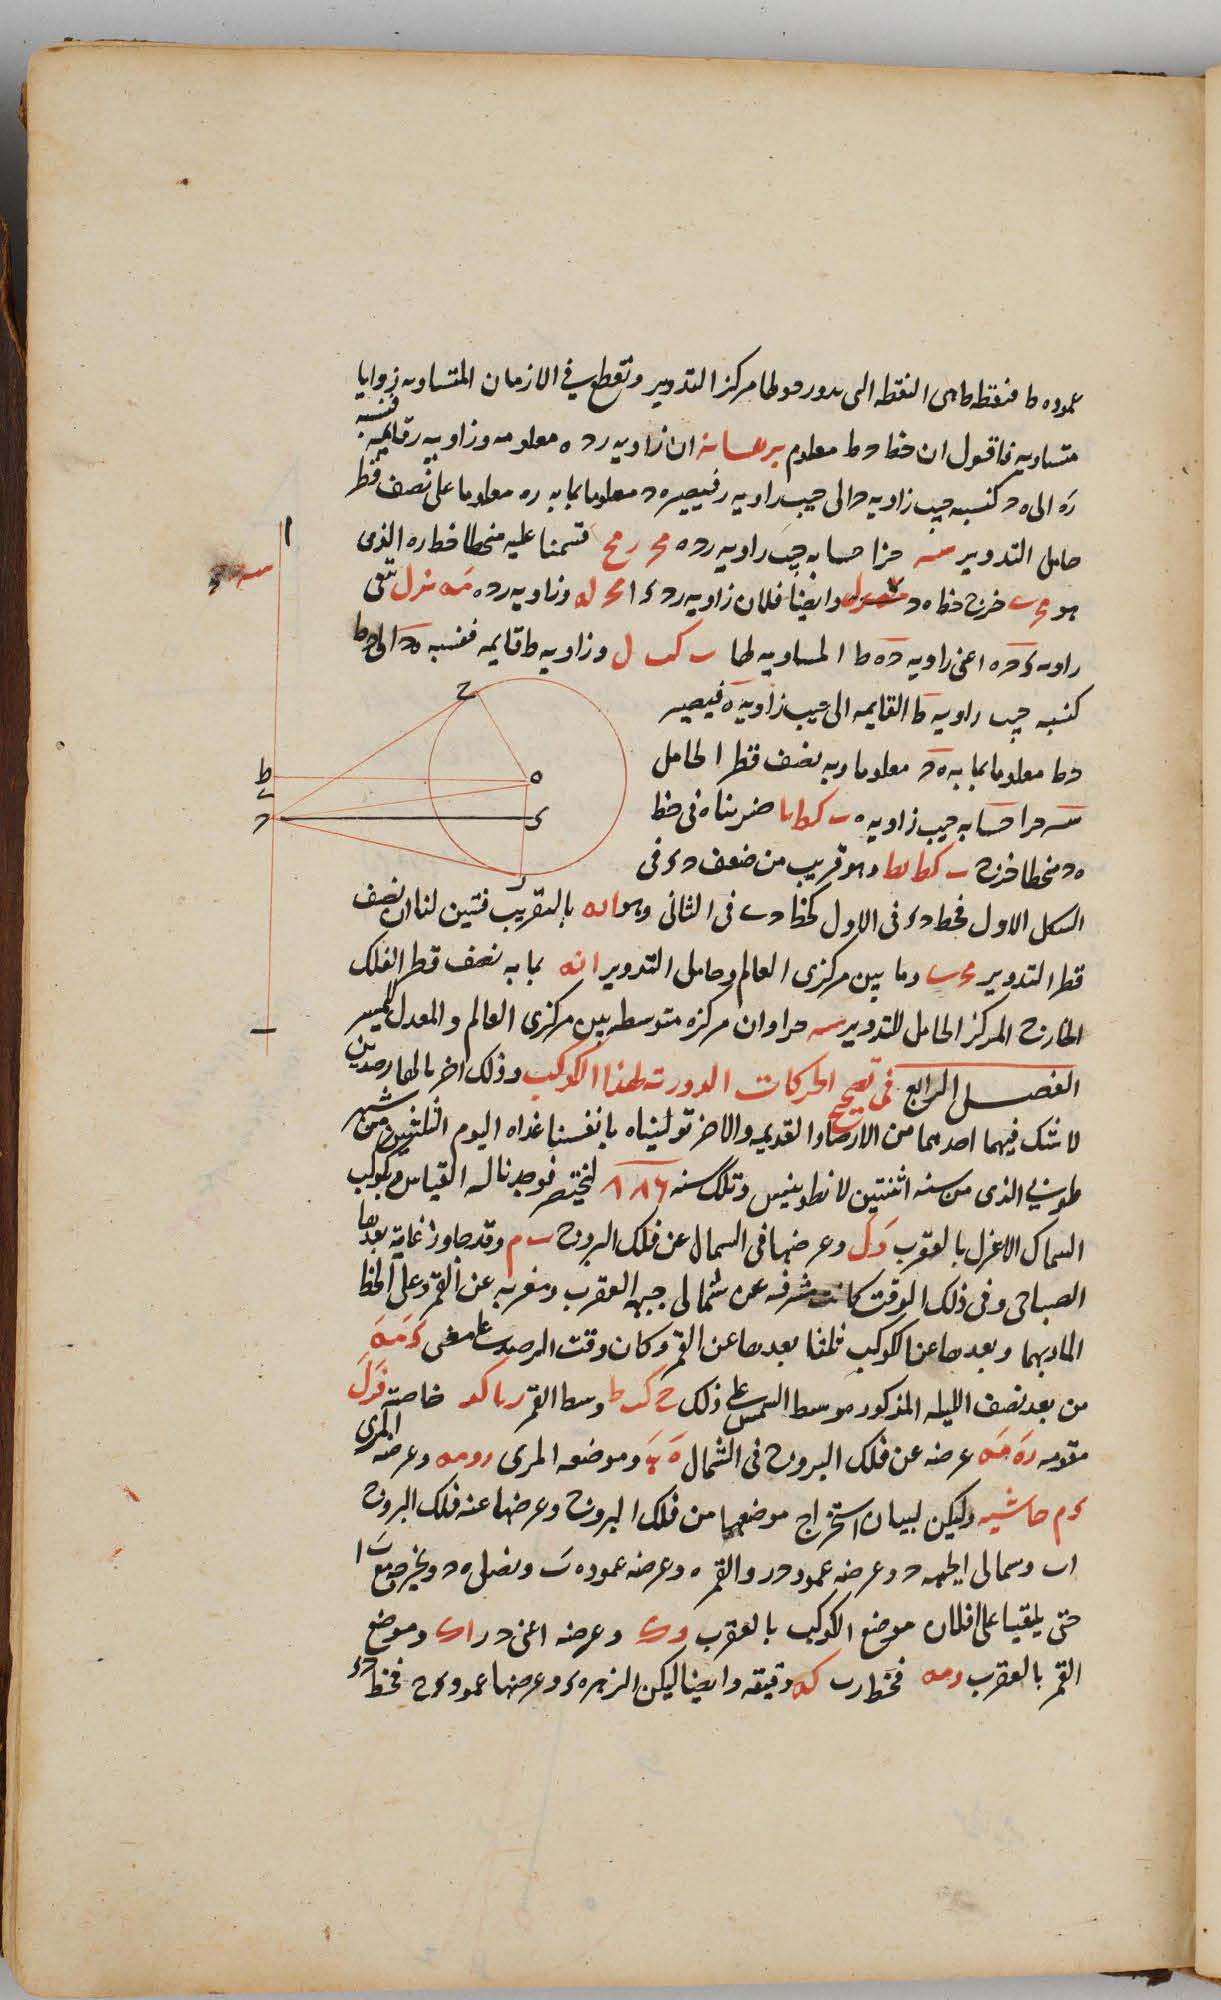 عموده ط فنقطه ط هى النقطه التى يدور حولها مركز التدوير وتقطع فى الازمان المتساويه زوايا
متساويه فاقول ان خط د ط معلوم برهانه ان زاويه ر د ه معلومه وزاويه ر قايمه فنسبه
ره الى ه د كنسبه جيب زاويه د الى جيب زاويه ر فيصير ه د معلوما بما به ره معلوما على نصف قطر
حامل التدوير سه جزا حسابه جيب زاويه ر د ه مح ر مح قسمنا عليه منحطا خط ره الذى
هو مح ب خرج خط ه د وايضا فلان زاويه ر د ى ا مح له وزاويه ر د ه مه نر ل تبقى
زاويه ى د ه اعنى زاويه د ه ط المساويه لها ب كب ل وزاويه ط قايمه فنسبه ه د الى د ط
كنسبه جيب زاويه ط القايمه الى جيب زاويه ه فيصير
د ط معلوما بما به ه د معلوما وبه نصف قطر الحامل
سه جزا حسابه جيب زاويه ه ب كط نا ضربناه فى خط
ه د منحطا خرج ب كط نط وهو قريب من ضعف د ى فى
الشكل الاول فخط د ى فى الاول كخط د ب فى الثانى وهو ا نه بالتقريب فتبين لنا ان نصف
قطر التدوير مح ب وما بين مركزى العالم وحامل التدوير ا نه بما به نصف قطر الفلك
الخارج المركز الحامل للتدوير سه جزا وان مركزه متوسطه بين مركزى العالم والمعدل للمسير
الفصل الرابع فى تصحيح الحركات الدوريه لهذا الكوكب وذلك اخرناها رصدين
لا شك فيهما احدهما من الارصاد القديمه والاخر توليناه بانفسنا غداه اليوم الثلثين من شهر
طوبى الذى من سنه اثنتين لانطونينس وتلك سنه ٨٨٦ لبختنصر فوجدناه القياس وبكوكب
السماك الاعزل بالعقرب و ل وعرضها فى الشمال عن فلك البروج ب م وقد جاوز غايه بعدها
الصباحى وفى ذلك الوقت كانت مشرفه عن شمالى جبهه العقرب ومغربه عن القمر وعلى الخط
المار بهما وبعدها عن الكوكب ثلثا بعدها عن القمر وكان وقت الرصد على مضى د مه
من بعد نصف الليله المذكور هو وسط الشمس على ذلك ح كب ط وسط القمر ر يا كد خاصته ف ل
مقومه ره مه عرضه عن فلك البروج فى الشمال ه وموضعه المرى ر و مه وعرضه المرى
د م حاشيه وليكن لبيان استخراج موضعها من فلك البروج وعرضها عنه فلك البروج
اب وشمالى الجبهه د وعرضه عمود د ر والقمر ه وعرضه عمود ه ب ونصل ه د ويخرج مع ب ا
حتى يلتقيا على ا فلان موضع الكوكب بالعقرب و ك وعرضه اعنى د ر ا ك وموضع
القمر بالعقرب و مه فخط ر ب كه دقيقه وايضا ليكن الزهره ى وعرضها عمود ى ح فخط د ى
ا
سه
ح
ط
ه
ب
د
ى
ر
ب